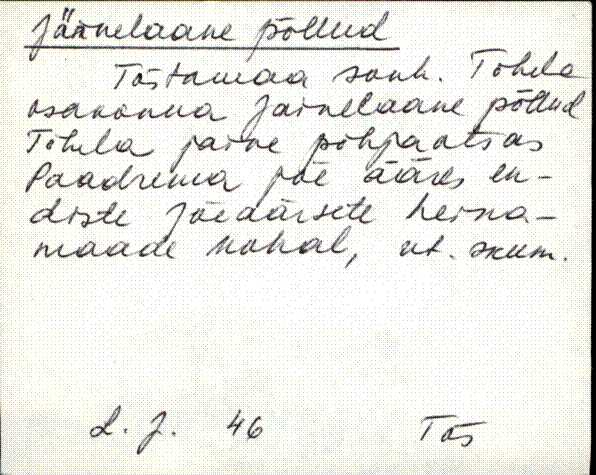 Järnelaane põllud
Tõstamaa sovh. Tõhela
osakonna Järnelaane põllud
Tõhela järve põhjaotsas
Paadrema jõe ääres en-
diste jõeäärsete heina-
maade kohal, vt. skeem.
L. J. 46 Tõs